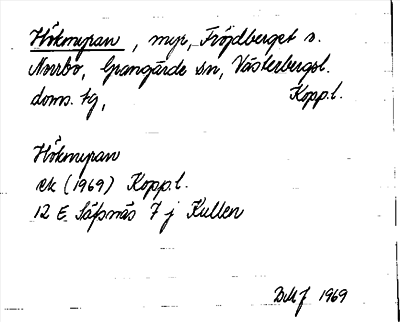 Hökmyran, myr, Fröjdberget s.
Norrbo, Grangärde sn, Västerbergsl.
doms. tg, Kopp.l.
Hökmyran
ek (1969) Kopp.l.
12 E Säfsnäs 7 j Kullen
1969